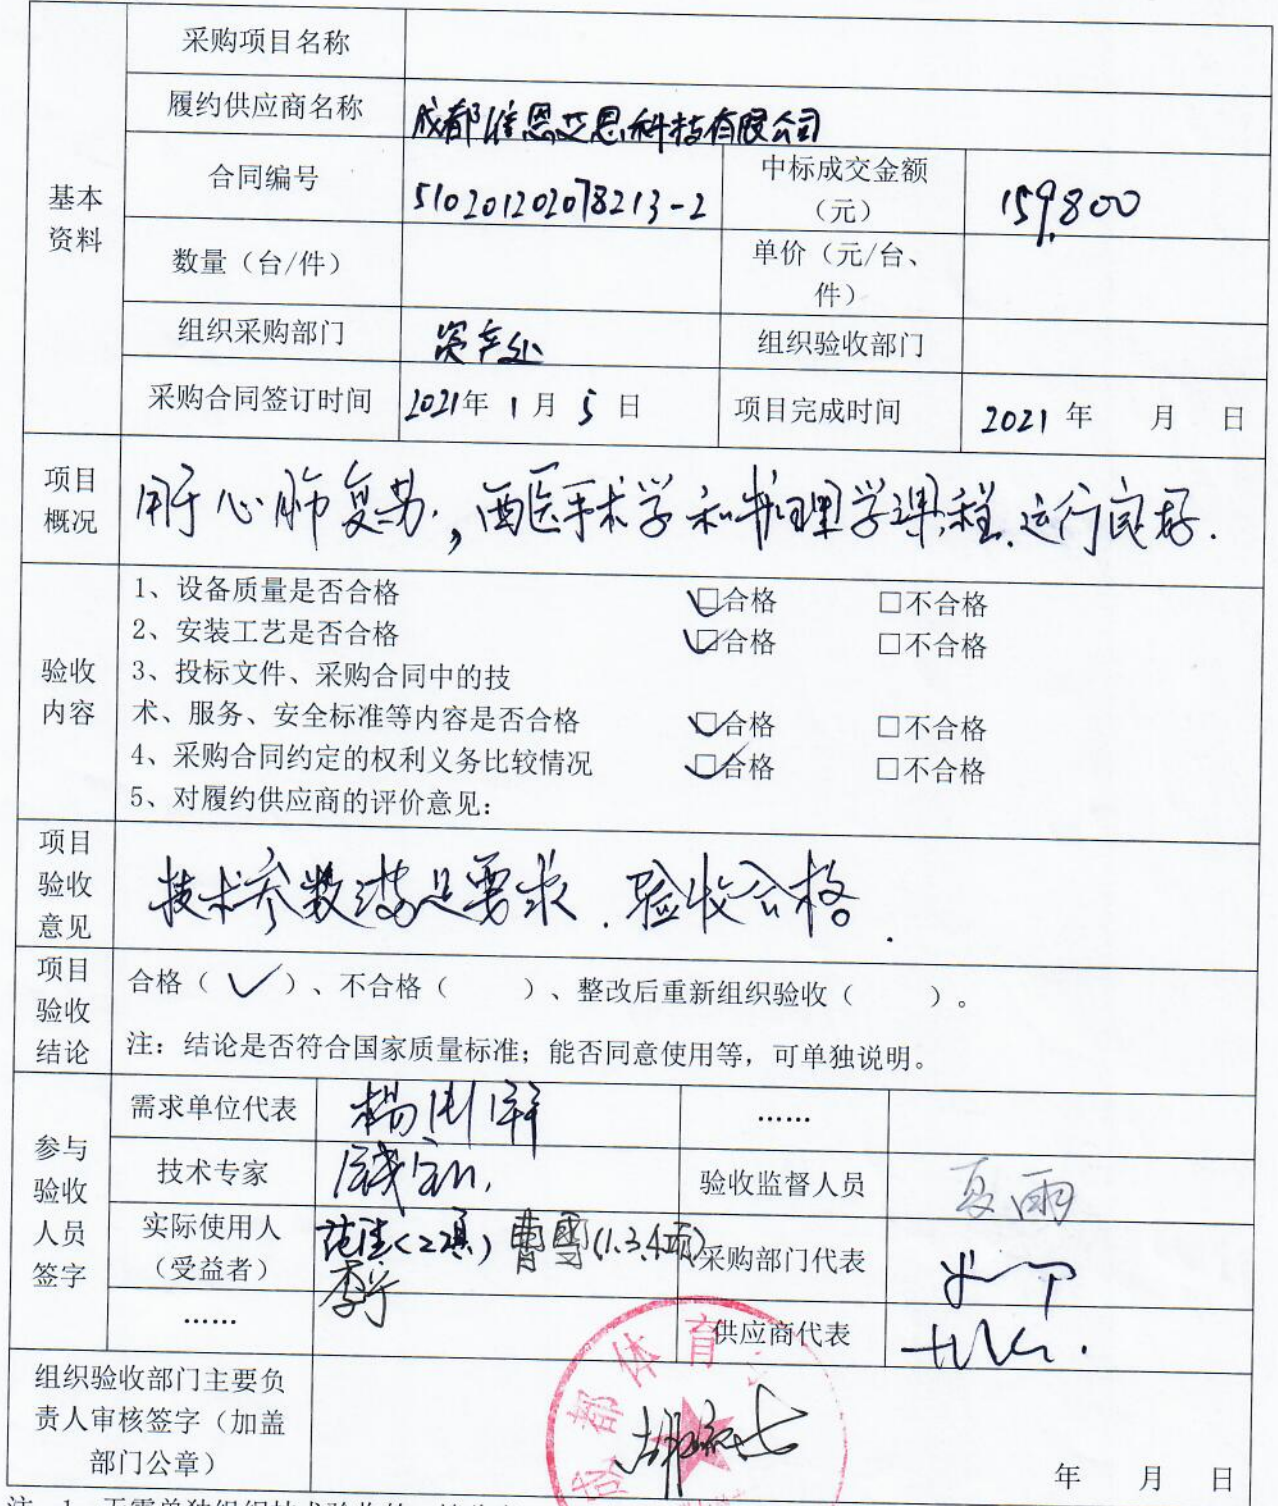 采购项目名称
履约供应商名称 成都维恩艾恩科技有限公司
合同编号 510201202078213-2 中标成交金额
（元） 159,800
基本
资料
数量（台/件） 单价（元/台、
件）
组织采购部门 资产处 组织验收部门
采购合同签订时间 2021年 1 月 5 日 项目完成时间 2021 年 月 日
项目
概况
用于心肺复苏，西医手术学和护理学课程.运行良好.
验收
内容
1、设备质量是否合格 □合格 □不合格
2、安装工艺是否合格 □合格 □不合格
3、投标文件、采购合同中的技
术、服务、安全标准等内容是否合格 □合格 □不合格
4、采购合同约定的权利义务比较情况 □合格 □不合格
5、对履约供应商的评价意见：
项目
验收
意见
技术参数满足要求.验收合格.
项目
验收
结论
合格（✓）、不合格（ ）、整改后重新组织验收（ ）。
注：结论是否符合国家质量标准；能否同意使用等，可单独说明。
参与
验收
人员
签字
需求单位代表 ……
技术专家 验收监督人员 夏雨
实际使用人
（受益者） (2项) 曹雪(1.3.4项) 采购部门代表
李宁
…… 供应商代表
组织验收部门主要负
责人审核签字（加盖
部门公章）
成都体育
年 月 日